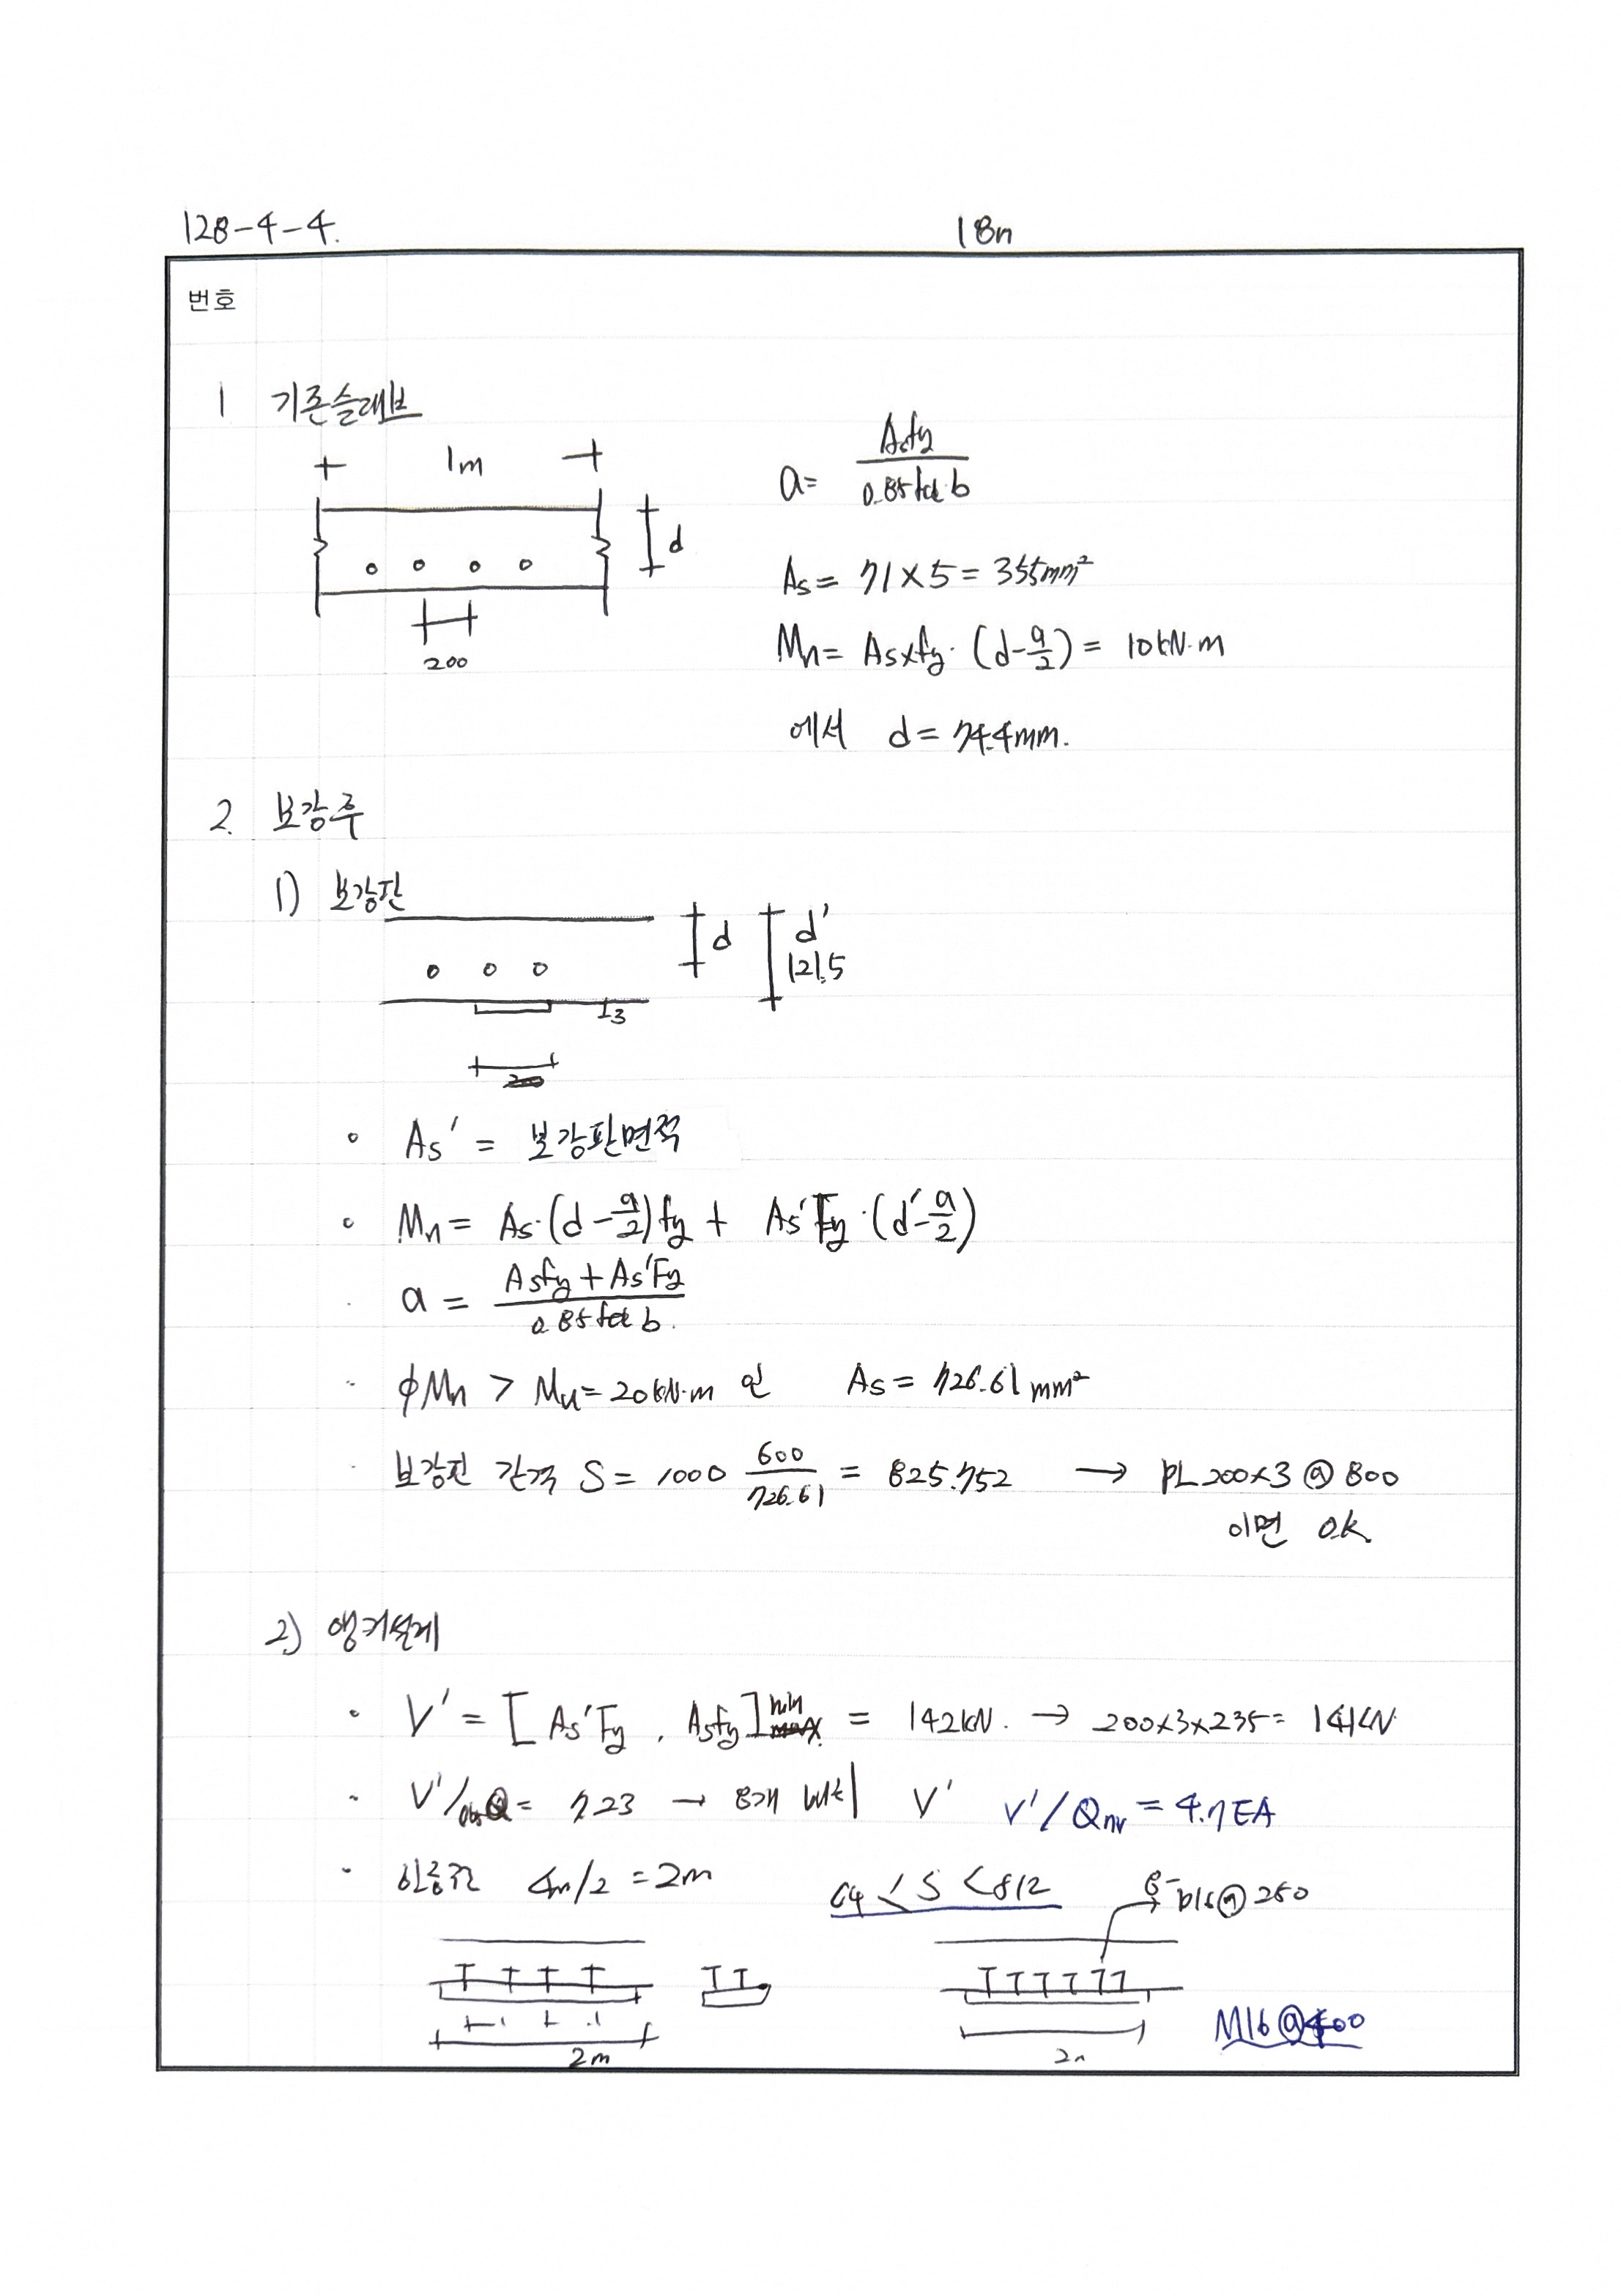 128-4-4.
18n
번호
1 기존슬래브
1m
d
200
a= Asfy / 0.85fck·b
As = 71×5 = 355mm²
Mn = As×fy·(d-a/2) = 10kN·m
에서 d = 74.4mm.
2. 보강후
1) 보강판
d
d'
121.5
3
As' = 보강판면적
Mn = As·(d-a/2)fy + As'Fy·(d'-a/2)
a = Asfy + As'Fy / 0.85fck b.
φMn > Mu = 20kN·m 인 As = 726.61mm²
보강판 간격 S = 1000 600/726.61 = 825.752 → PL200×3 @800
이면 OK
2) 앵커설계
V' = [As'Fy, Asfy]min = 142kN. → 200×3×235 = 141kN
= 7.23 → 8개 V' V'/Qnv = 4.7EA
4m/2 = 2m
< S < 812
8- D16@250
2m
2m
M16@400